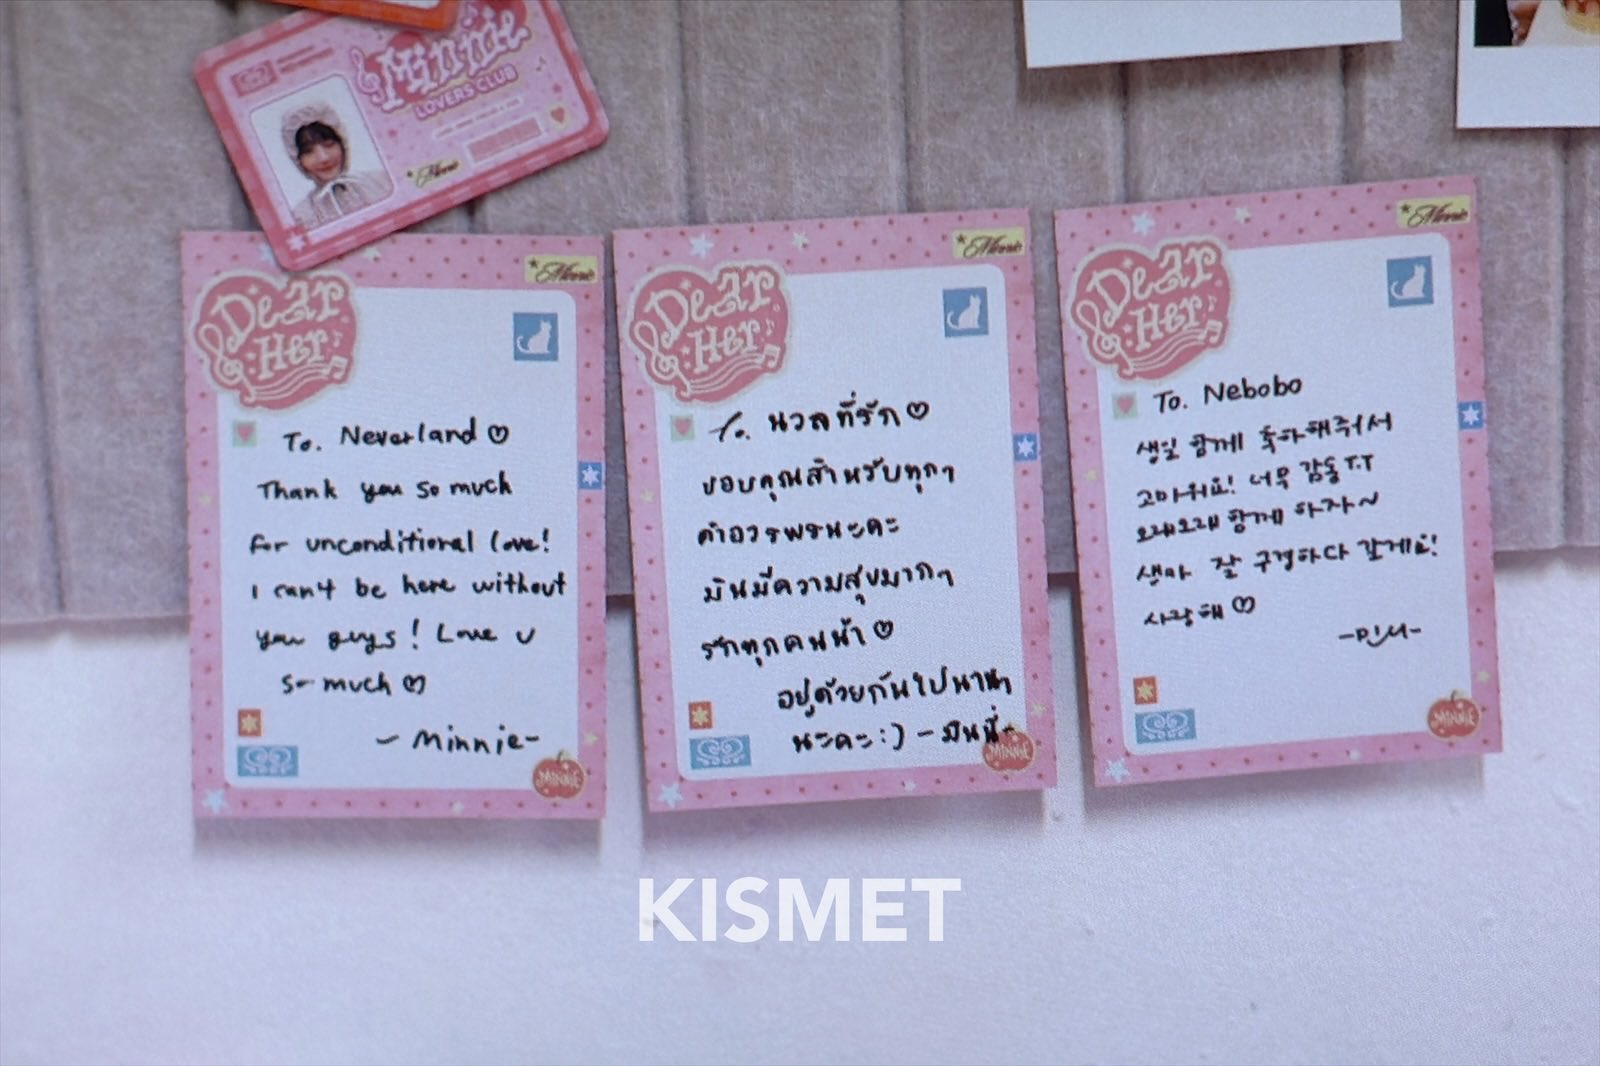 Minnie
LOVERS CLUB
Minnie
Minnie
Dear
Her
To. Neverland ♡
Thank you so much
for unconditional love!
I can't be here without
you guys! Love u
so much ♡
- Minnie-
MINNIE
Minnie
Dear
Her
To. นวลที่รัก ♡
ขอบคุณสำหรับทุกๆ
คำอวยพรนะคะ
มินมีความสุขมากๆ
รักทุกคนน้า ♡
อยู่ด้วยกันไปนานๆ
นะคะ :) - มินนี่-
MINNIE
Minnie
Dear
Her
To. Nebobo
생일 함께 축하해줘서
고마워요! 너무 감동 T.T
오래오래 함께 하자~
생카 잘 구경하다 갈게요!
사랑해 ♡
-미니-
MINNIE
KISMET